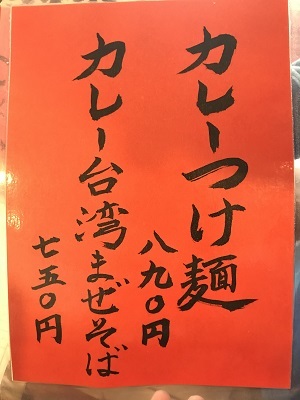 カレーつけ麺
八九〇円
カレー台湾まぜそば
七五〇円